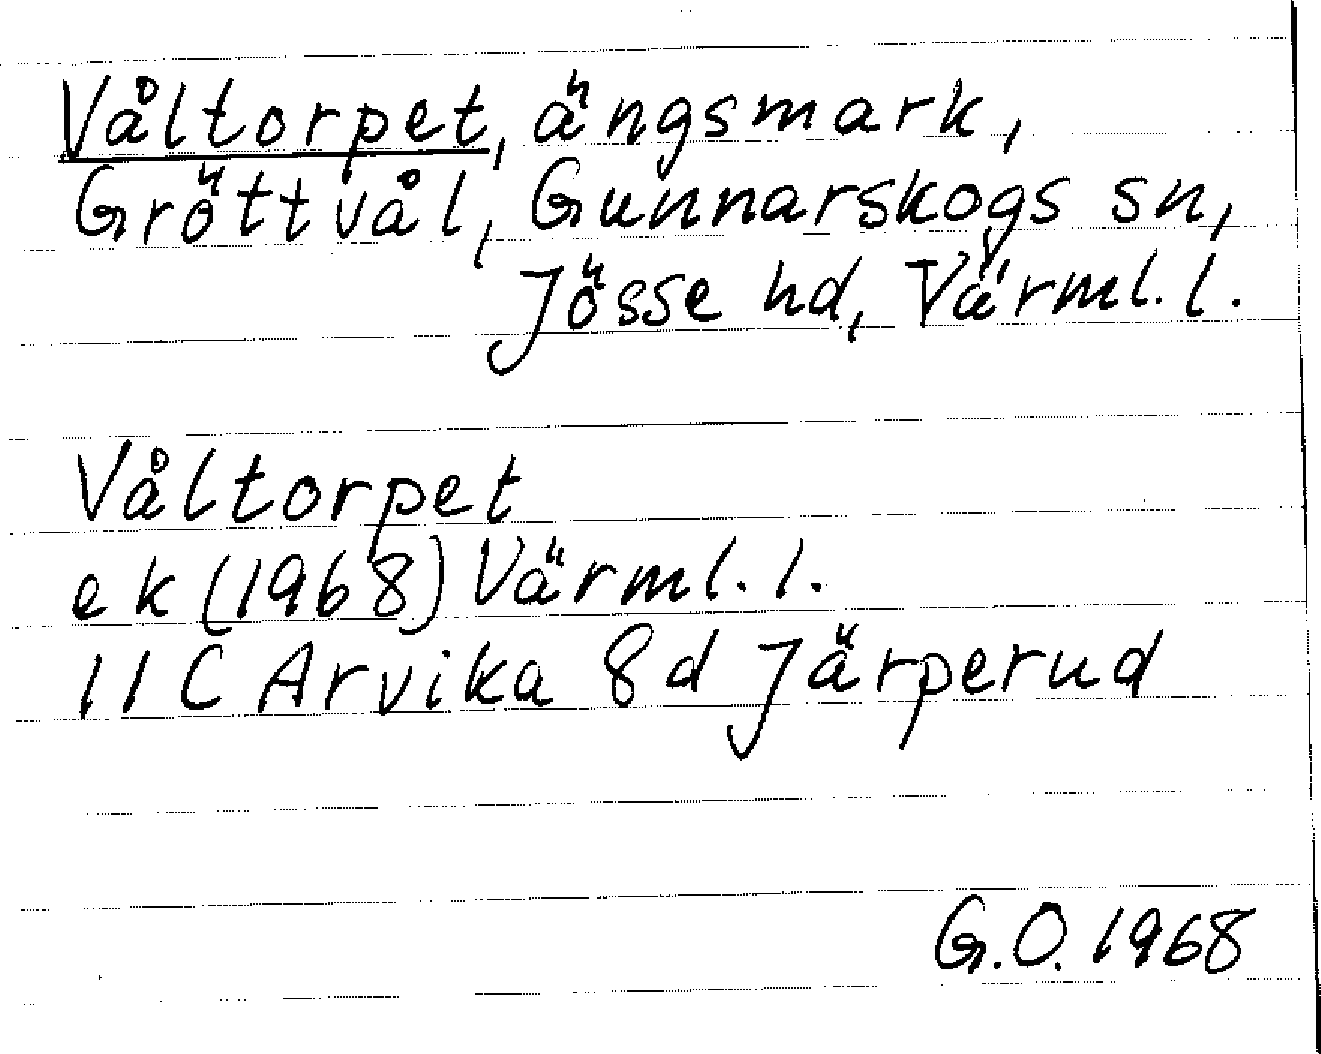 Våltorpet, ängsmark,
Gröttvål, Gunnarskogs sn,
Jösse hd, Värml. l.
Våltorpet
ek (1968) Värml. l.
11C Arvika 8d Järperud
G.O. 1968